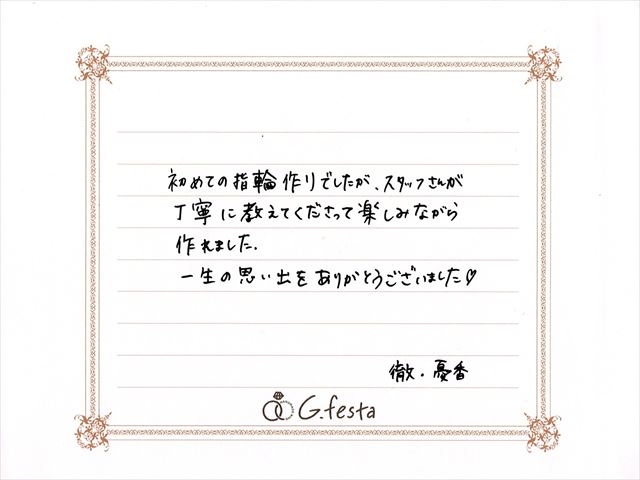 初めての指輪作りでしたが、スタッフさんが
丁寧に教えてくださって楽しみながら
作れました.
一生の思い出をありがとうございました♡
徹.憂香
G.festa